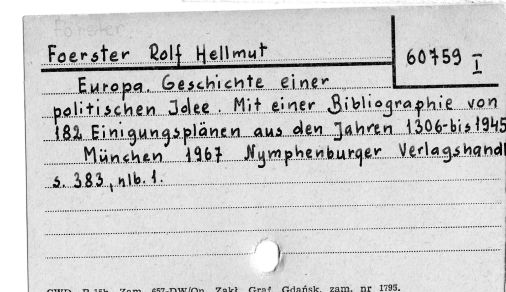 Foerster
Foerster Rolf Hellmut
60759 I
Europa. Geschichte einer
politischen Jdee. Mit einer Bibliographie von
182 Einigungsplänen aus den Jahren 1306-bis 1945
München 1967 Nymphenburger Verlagshandl
s. 383, nlb. 1.
GWD. P-15b. Zam. 657-DW/Op. Zakł. Graf. Gdańsk, zam. nr 1795.